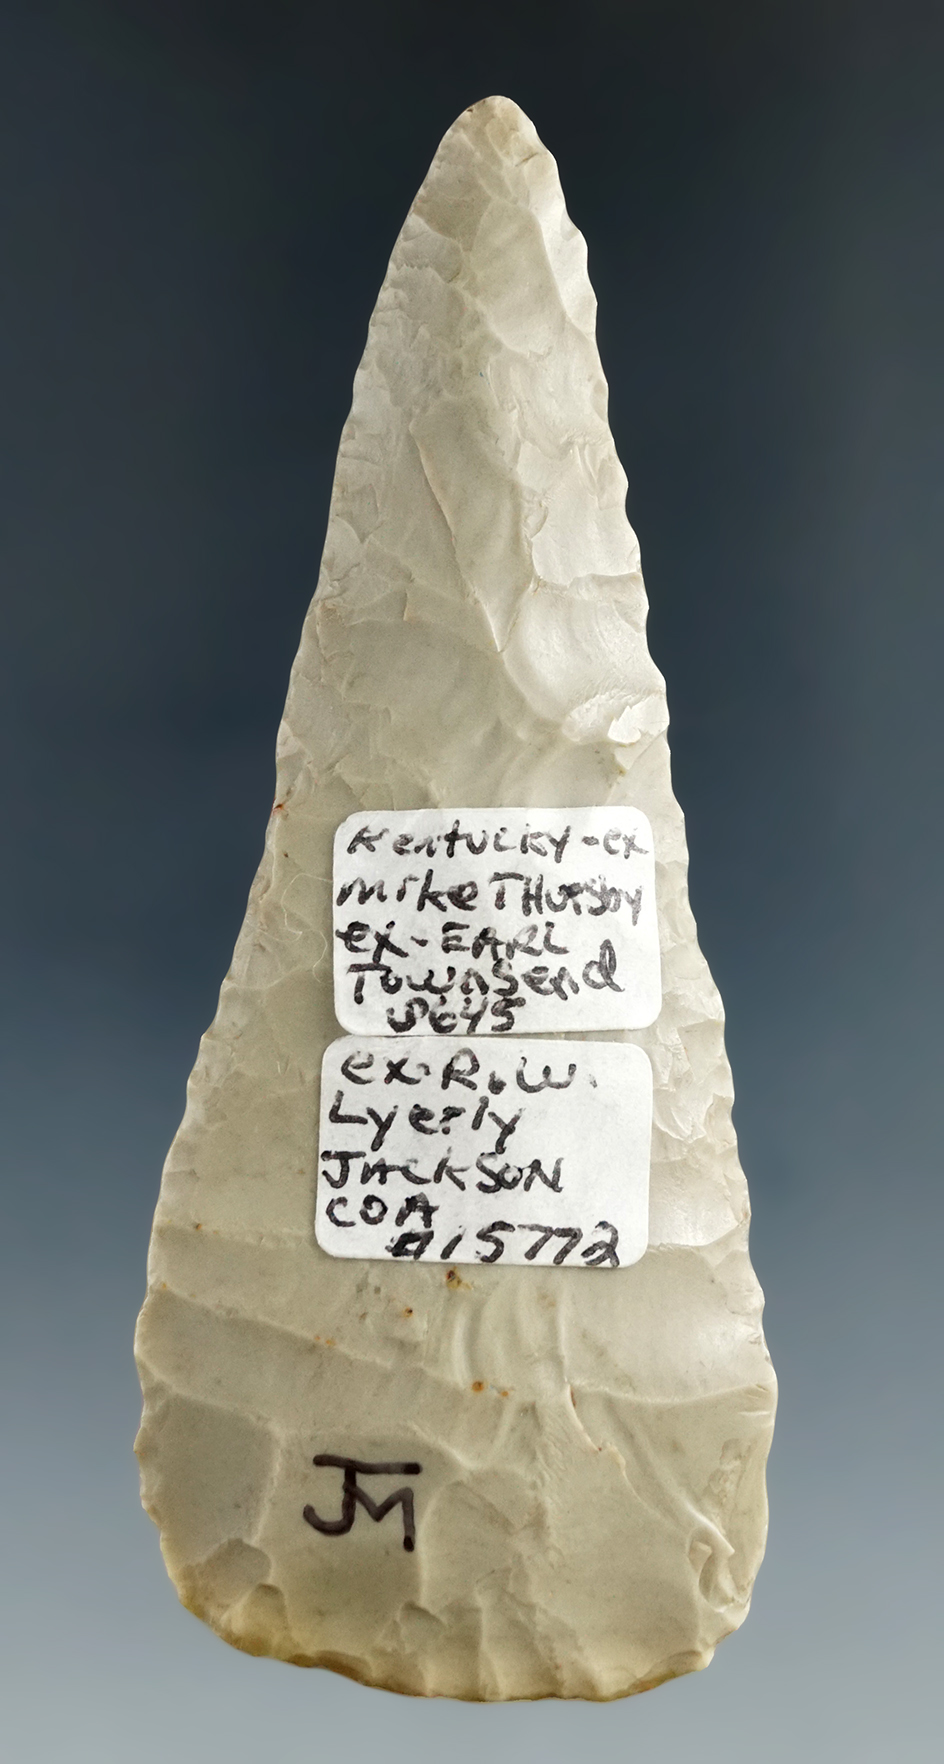 Kentucky-ex
Mike THursby
ex-EARL
TownSend
S645
ex-R.W.
Lyerly
JACKSON
CO A
#15772
JM